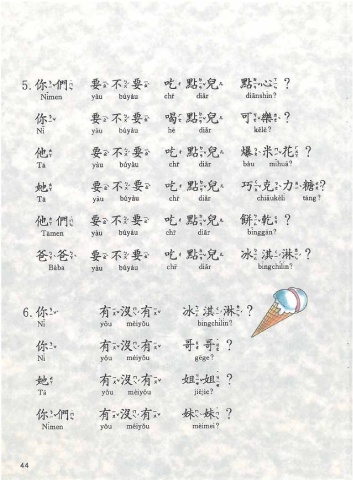 5. 你們 要不要 吃點兒 點心?
Nǐmen yàu búyàu chī diǎr diǎnshin?
你 要不要 喝點兒 可樂?
Nǐ yàu búyàu hē diǎr kělè?
他 要不要 吃點兒 爆米花?
Tā yàu búyàu chī diǎr bàu mǐhuā?
她 要不要 吃點兒 巧克力糖?
Tā yàu búyàu chī diǎr chiǎukèlì táng?
他們 要不要 吃點兒 餅乾?
Tāmen yàu búyàu chī diǎr bǐnggān?
爸爸 要不要 吃點兒 冰淇淋?
Bàba yàu búyàu chī diǎr bīngchílín?
6. 你 有沒有 冰淇淋?
Nǐ yǒu méiyǒu bīngchílín?
你 有沒有 哥哥?
Nǐ yǒu méiyǒu gēge?
她 有沒有 姐姐?
Tā yǒu méiyǒu jiějie?
你們 有沒有 妹妹?
Nǐmen yǒu méiyǒu mèimei?
44